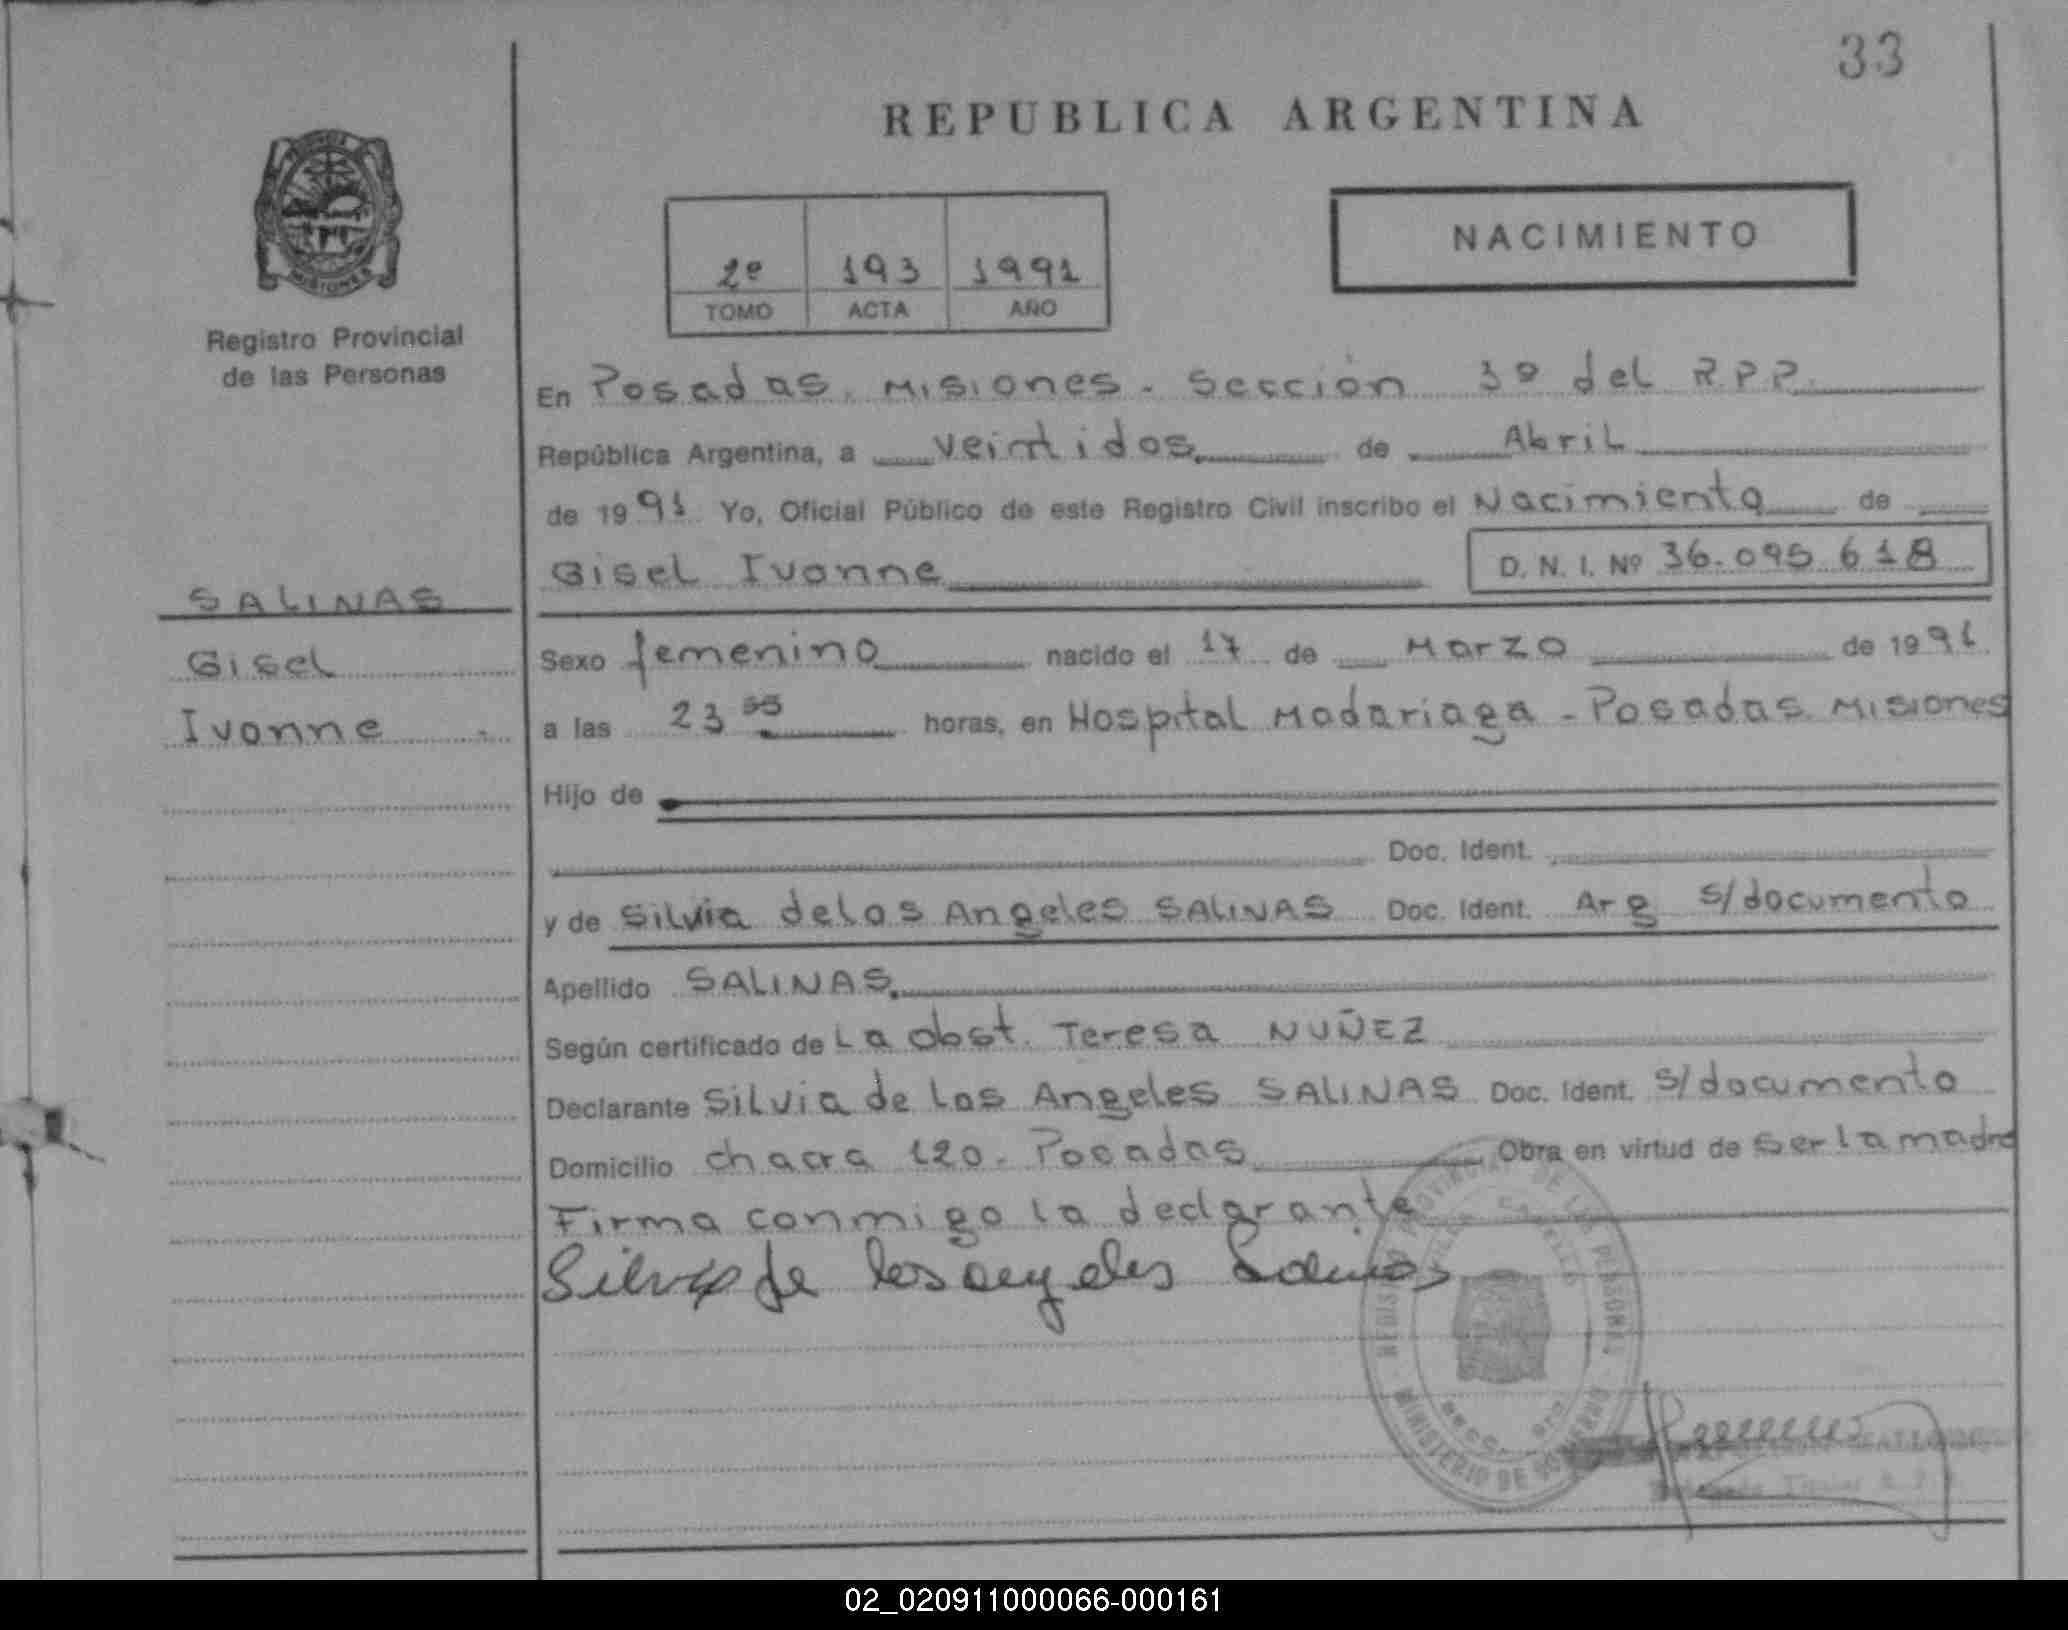 33
REPUBLICA ARGENTINA
NACIMIENTO
2º 193 1991
TOMO ACTA AÑO
MISIONES
Registro Provincial
de las Personas
En Posadas, Misiones - Sección 3º del R.P.P.
República Argentina, a veintidos de Abril
de 1991 Yo, Oficial Público de este Registro Civil inscribo el Nacimiento de
Gisel Ivonne D. N. I. Nº 36.095.618
SALINAS
Gisel
Ivonne
Sexo femenino nacido el 17 de Marzo de 1991
a las 23 55 horas, en Hospital Madariaga - Posadas Misiones
Hijo de
Doc. Ident.
y de Silvia de los Angeles SALINAS Doc. Ident. Arg s/documento
Apellido SALINAS
Según certificado de La obst. Teresa NUÑEZ
Declarante Silvia de Los Angeles SALINAS Doc. Ident. s/documento
Domicilio chacra 120 - Posadas Obra en virtud de ser la madre
Firma conmigo la declarante
Silvia de los angeles Salinas
REGISTRO PROVINCIAL DE LAS PERSONAS
MINISTERIO DE GOBIERNO
Titular R. P. P.
02_020911000066-000161